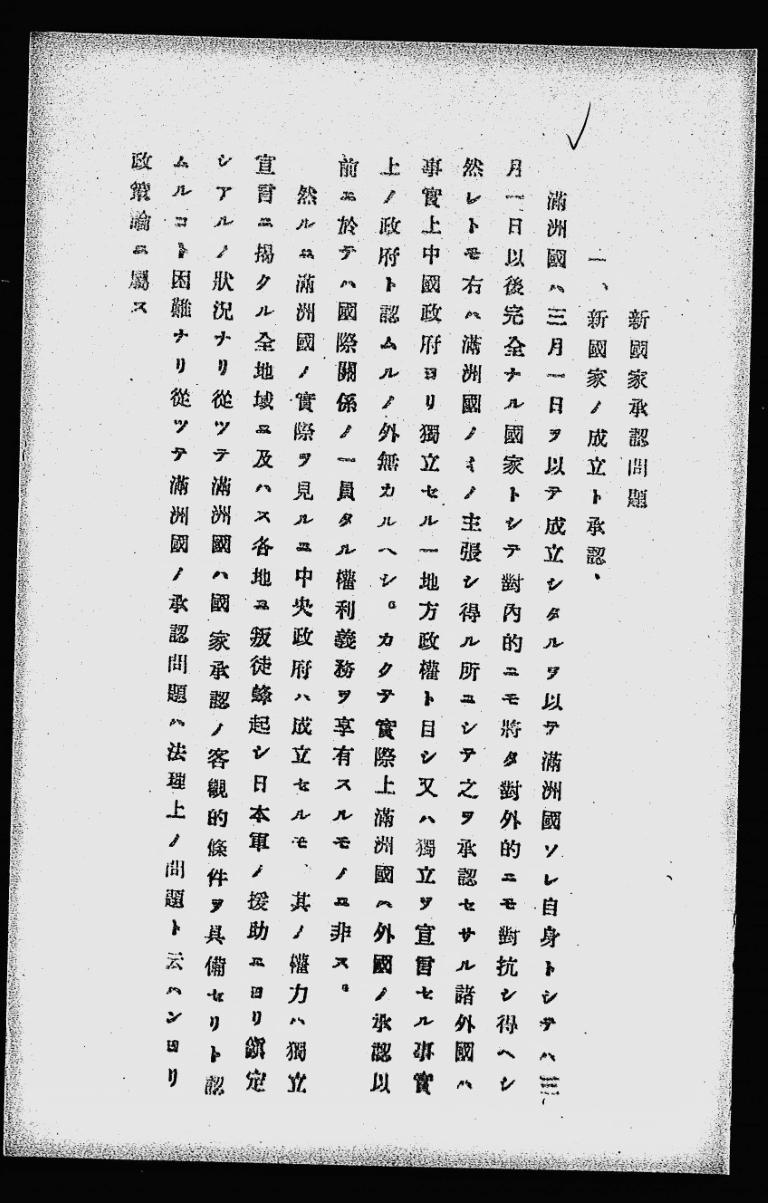 新國家承認問題
一、新國家ノ成立ト承認、
滿洲國ハ三月一日ヲ以テ成立シタルヲ以テ滿洲國ソレ自身トシテハ三
月一日以後完全ナル國家トシテ對內的ニモ將タ對外的ニモ對抗シ得ヘシ
然レトモ右ハ滿洲國ノミノ主張シ得ル所ニシテ之ヲ承認セサル諸外國ハ
事實上中國政府ヨリ獨立セル一地方政權ト目シ又ハ獨立ヲ宣言セル事實
上ノ政府ト認ムルノ外無カルヘシ。カクテ實際上滿洲國ハ外國ノ承認以
前ニ於テハ國際關係ノ一員タル權利義務ヲ享有スルモノニ非ス。
然ルニ滿洲國ノ實際ヲ見ルニ中央政府ハ成立セルモ、其ノ權力ハ獨立
宣言ニ揭クル全地域ニ及ハス各地ニ叛徒蜂起シ日本軍ノ援助ニヨリ鎭定
シアルノ狀況ナリ從ツテ滿洲國ハ國家承認ノ客觀的條件ヲ具備セリト認
ムルコト困難ナリ從ツテ滿洲國ノ承認問題ハ法理上ノ問題ト云ハンヨリ
政策論ニ屬ス